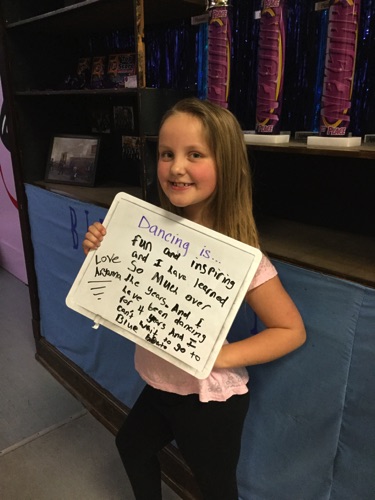 Dancing is...
fun and inspiring
and I have learned
So Much over
the years. And I
have been dancing
for 4 years And I
can't wait to go to
Blue
Love